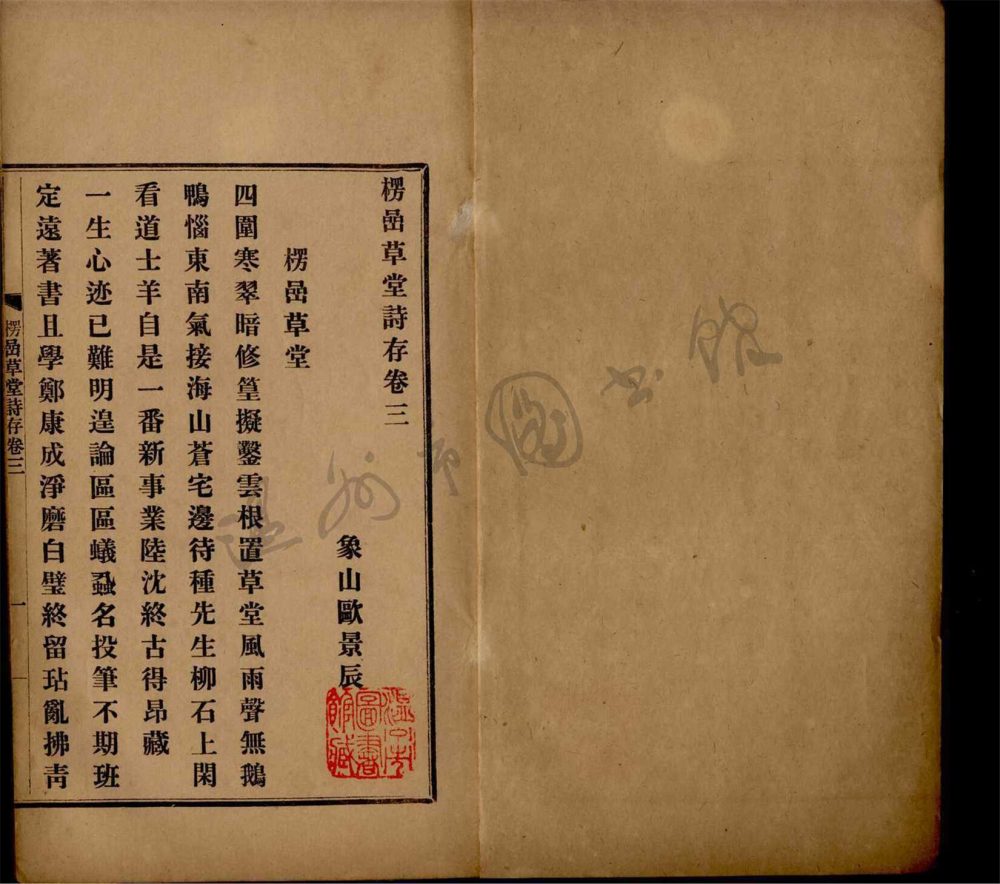 楞嵒草堂詩存卷三
象山歐景辰
楞嵒草堂
四圍寒翠暗修篁擬鑿雲根置草堂風雨聲無鵝
鴨惱東南氣接海山蒼宅邊待種先生柳石上閑
看道士羊自是一番新事業陸沈終古得昂藏
一生心迹已難明遑論區區蟻蝨名投筆不期班
定遠著書且學鄭康成淨磨白璧終留玷亂拂青
楞嵒草堂詩存卷三
一
溫州市
圖書
館藏
溫州市圖書館